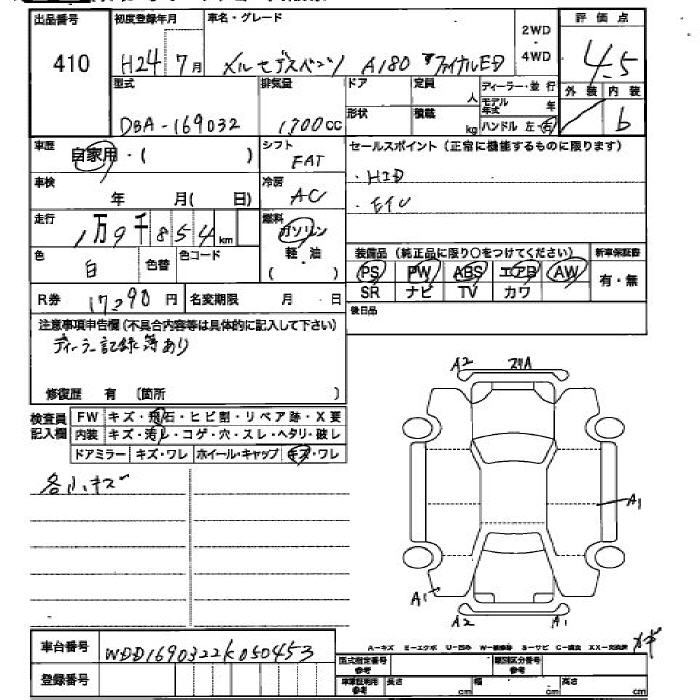 出品番号 初度登録年月 車名・グレード 2WD・4WD 評価点
410 H24年7月 メルセデスベンツ A180 ファイナルED 4.5
型式 排気量 ドア 定員 人 ディーラー・並行 外装 内装
DBA-169032 1700cc 形状 積載 kg モデル年式 年 ハンドル 左・右 b
車歴 自家用・( ) シフト FAT セールスポイント(正常に機能するものに限ります)
車検 年 月( 日) 冷房 AC ・HID
・ETC
走行 1万9千854km 燃料 ガソリン 軽・油 ( )
装備品(純正品に限り○をつけてください) 新車保証書
色 白 色替 色コード PS PW ABS エアB AW 有・無
SR ナビ TV カワ
R券 17290円 名変期限 月 日 後日品
注意事項申告欄(不具合内容等は具体的に記入して下さい)
ディーラー記録簿あり
修復歴 有 〔箇所 〕
検査員記入欄 FW キズ・飛石・ヒビ割・リペア跡・X要
内装 キズ・汚レ・コゲ・穴・スレ・ヘタリ・破レ
ドアミラー キズ・ワレ ホイール・キャップ キズ・ワレ
各小キズ
A2
A1
A1
A2 A1
車台番号 WDD1690322K050453
A-キズ E-エクボ U-凹み
登録番号 型式指定番号 参考 類別区分番号 参考
車庫証明用 参考 長さ cm 幅 cm 高さ cm